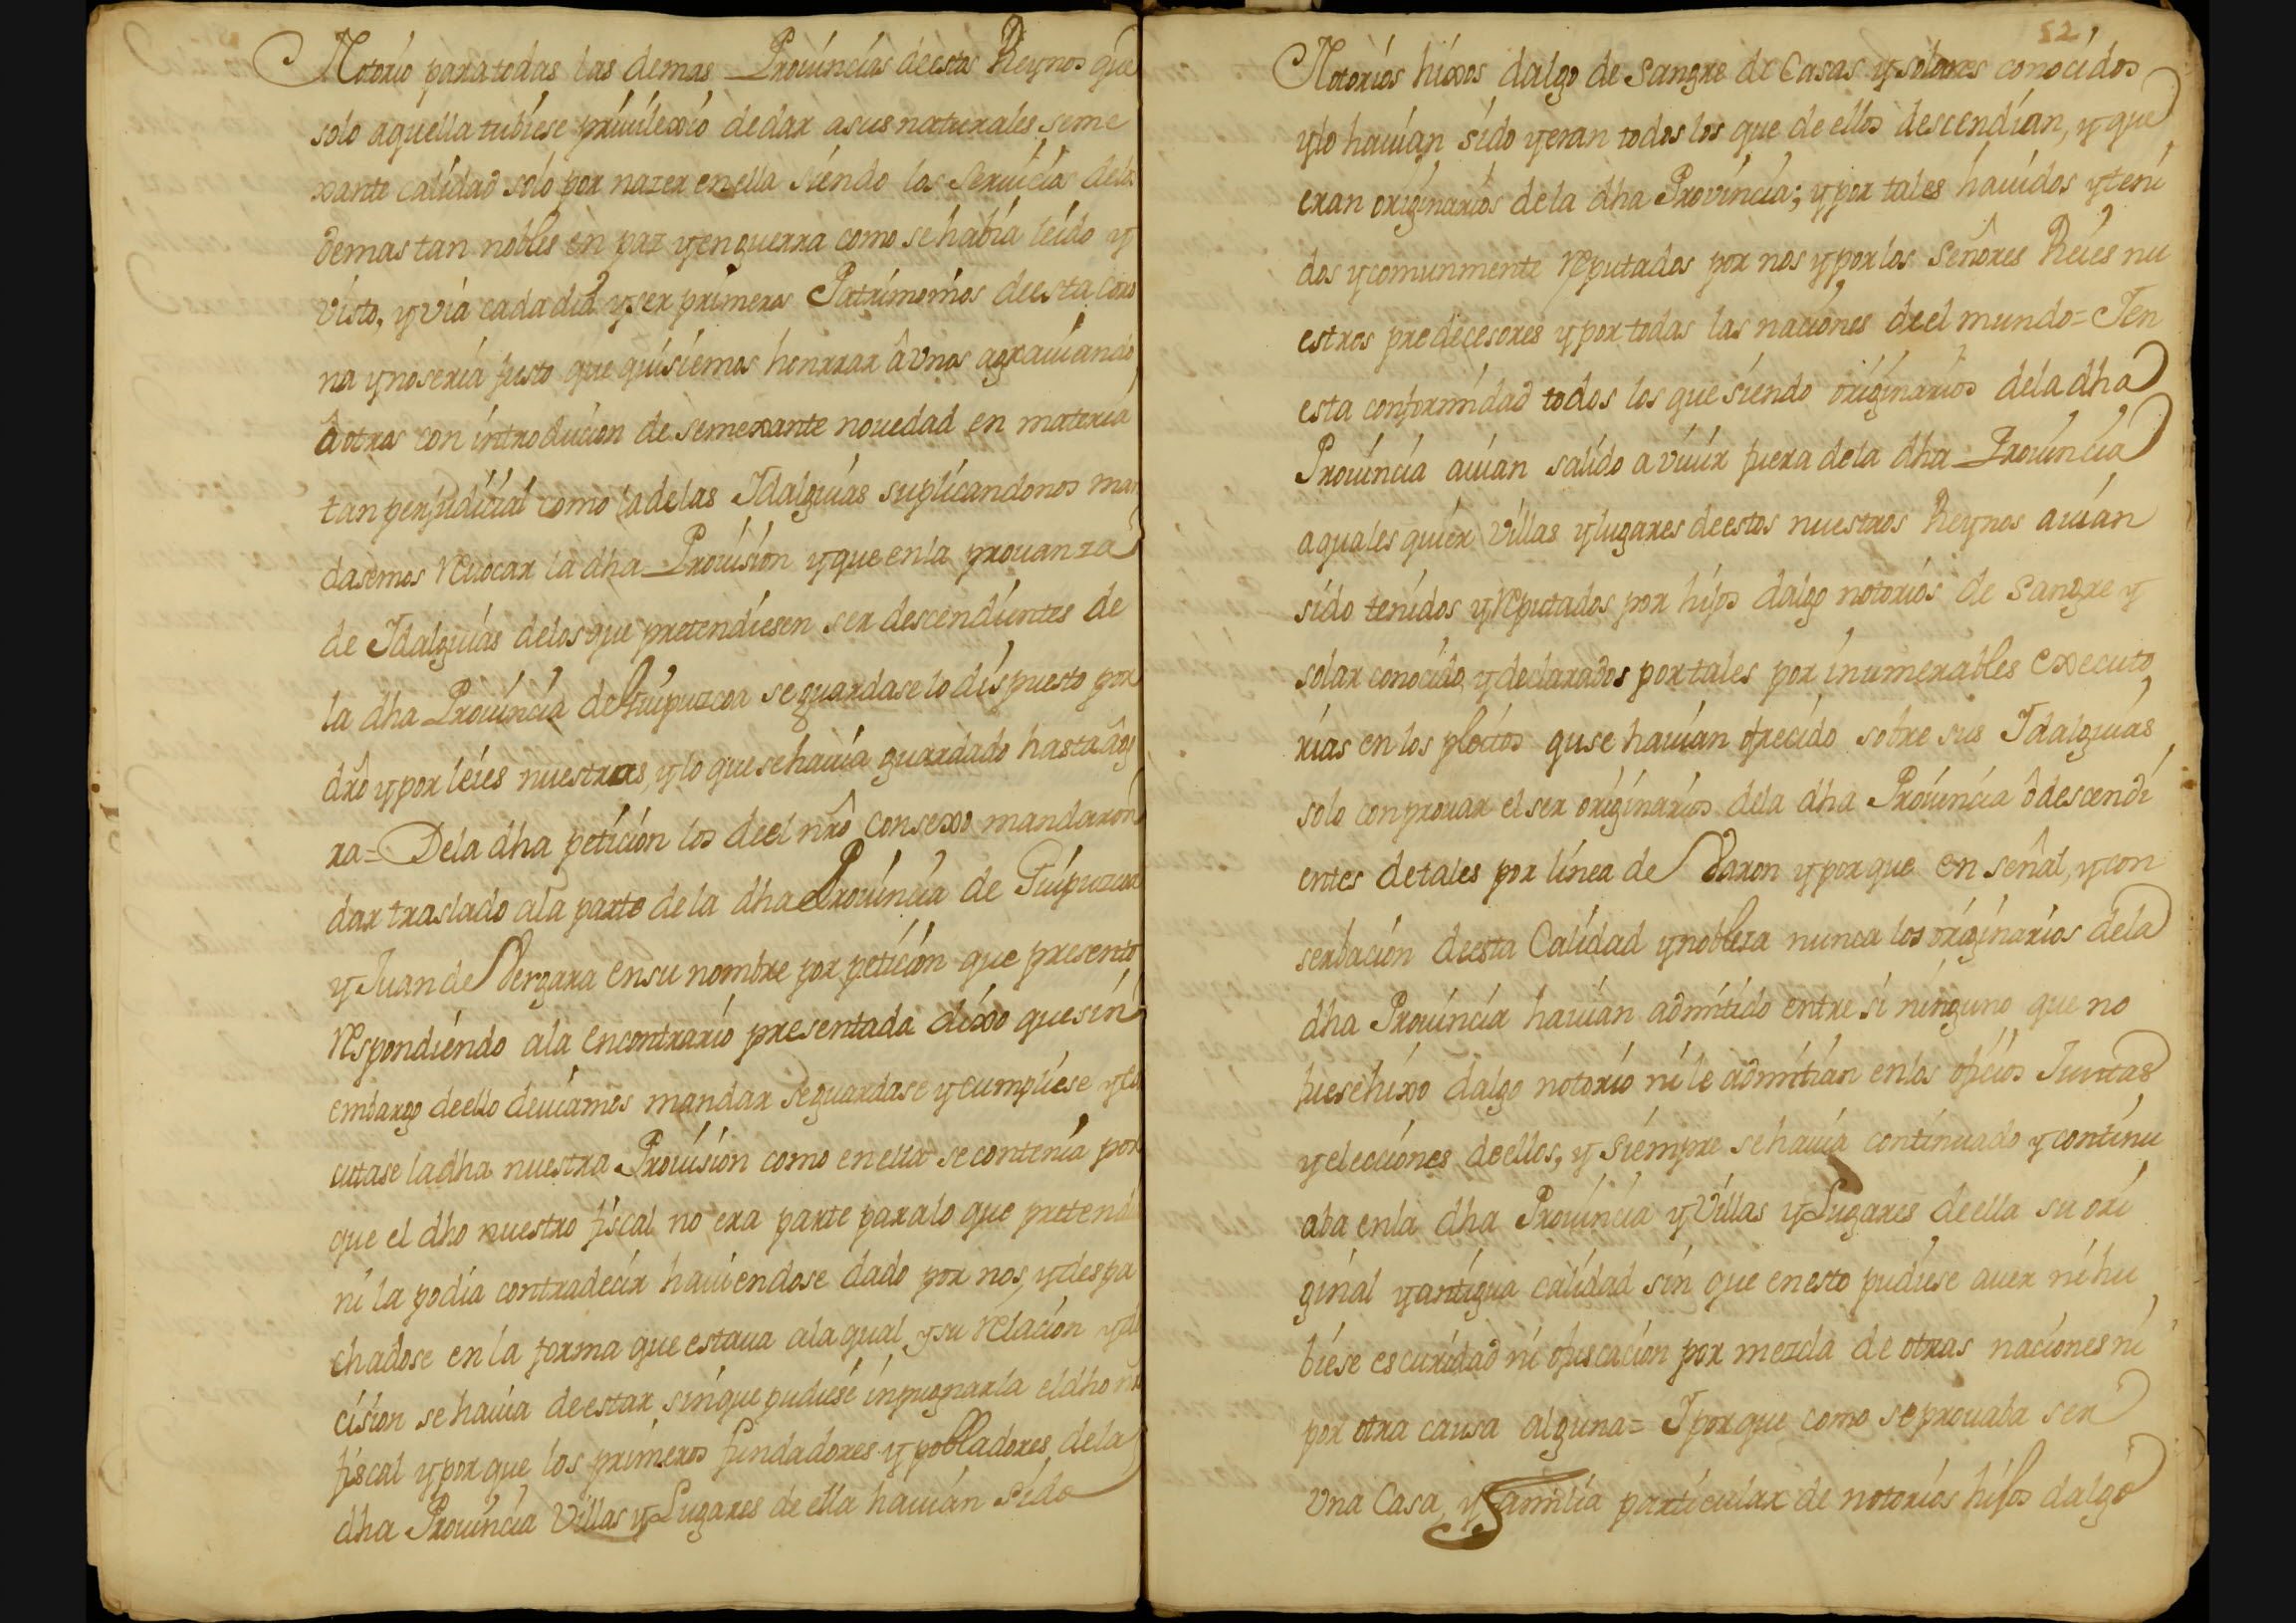 Notorio para todas las demas Prouincias deestos Reynos que
solo aquella tubiese priuilexio dedar asus naturales seme
xante calidad solo por nazer enella siendo los Seruicios delos
demas tan nobles en paz yenguerra como se habia leido y
visto, y via cada dia y ser primeros Patrimonios deesta Coro
na ynoseria justo que quisiemos honrrar âvnos agrauiando
âotros con introducion de semexante nouedad en materia
tan perjudicial como ladelas Idalguias suplicandonos man
dasemos reuocar la dha Prouision yqueenla prouanza
de Idalguias delosque pretendiesen ser descendientes de
la dha Prouincia de Guipuzcoa seguardase lo dispuesto por
drô ypor leies nuestras, ylo quesehauia guardado hasta âog
ra= Dela dha peticion los deel nrô Consexo mandaron
dar traslado ala parte de la dha Prouincia de Guipuzcoa
y Juan de Vergara ensu nombre por peticion que presento
respondiendo ala encontrario presentada dixo quesin
embargo deello deuiamos mandar seguardase ycumpliese yexe
cutase ladha nuestra Prouision como enella se contenia por
que el dho nuestro fiscal no era parte paralo que pretendia
ni la podia contradecir hauiendose dado por nos, ydespa
chadose en la forma que estaua ala qual, ysu relacion yde
cision se hauia deestar sinque pudiese inpugnarla eldho nrô
fiscal yporque los primeros fundadores ypobladores dela
dha Prouincia Villas y Lugares de ella hauian sido
52,
Notorios hixos dalgo de Sangre de Casas ysolares conocidos
ylo hauian sido yeran todos los que de ellos descendian, y que
eran originarios dela dha Provincia; ypor tales hauidos yteni
dos ycomunmente reputados por nos yporlos Señores Reies nu
estros predecesores yportodas las naciones deel mundo= Ten
esta conformidad todos los que siendo originarios dela dha
Prouincia auian salido a viuir fuera dela dha Prouincia
aquales quier Villas ylugares deestos nuestros Reynos auian
sido tenidos yreputados por hijos dalgo notorios de Sangre y
solar conocido, ydeclarados portales por inumerables executo
rias en los pleitos quse hauian ofrecido sobre sus Idalguias
solo conprouar elser originarios dela dha Prouincia ôdescendi
entes detales por linea de Varon yporque en señal, ycon
serbacion deesta Calidad ynobleza nunca los originarios dela
dha Prouincia hauian admitido entre si ninguno que no
fuesehixo dalgo notorio ni le admitian enlos oficios Juntas
yelecciones deellos, y siempre sehauia continuado ycontinu
aba enla dha Prouincia yVillas yLugares deella su ori
ginal yantigua calidad sin que enesto pudiese auer nihu
biese escuridad ni ofuscacion por mezcla de otras naciones ni
por otra causa alguna= Iporque como seprouaba ser
vna Casa, yFamilia particular de notorios hijos dalgo